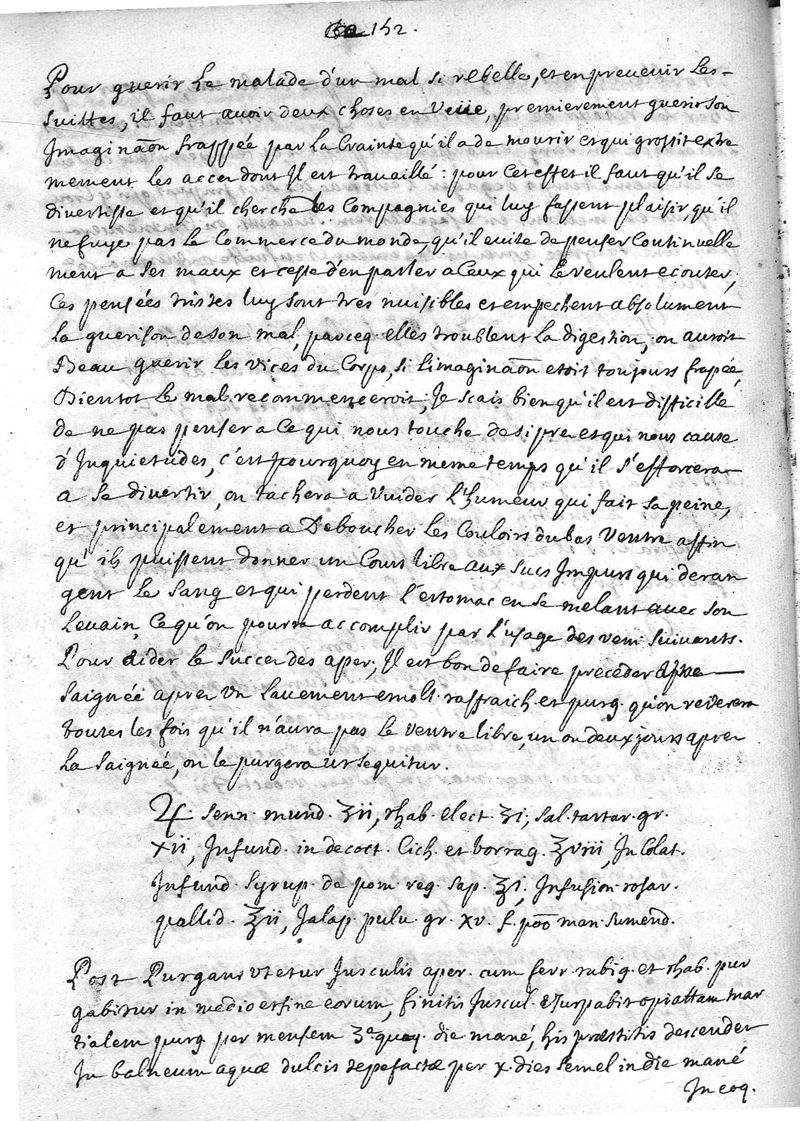 152.
Pour guerir le malade d'un mal si rebelle, et en prevenir les
suittes, il faut avoir deux choses en veüe, premierement guerir son
Imagina͠on frappée par la Crainte qu'il a de mourir et qui grossit extre
mement les accez dont Il est travaillé : pour Cet effet il faut qu'il se
divertisse et qu'il cherche les Compagnies qui luy fassent plaisir, qu'il
ne fuye pas le Commerce du monde, qu'il evite de penser Continuelle
ment a ses maux et cesse d'en parler a Ceux qui le veulent ecouter,
Ces pensées tristes luy sont tres nuisibles et empechent absolument
la guerison de son mal, parceq. elles troublent la digestion, on auroit
Beau guerir les vices du Corps, si l'imagina͠on etoit toujours frapée,
Bientot le mal recommenceroit, Je scais bien qu'il est difficille
de ne pas penser a Ce qui nous touche de si pres et qui nous cause
d'Inquietudes, c'est pourquoy en meme temps qu'il s'efforcera
a se divertir, on tachera a vuider l'humeur qui fait sa peine,
et principalement a Deboucher les Couloirs du bas Ventre affin
qu'ils puissent donner un Cours libre aux sucs Impurs qui deran
gent le sang et qui perdent l'estomac en se melant avec son
levain, Ce qu'on pourra accomplir par l'usage des rem. suivants.
Pour aider le succez des aper. Il est bon de faire preceder
Saignée aprez Un lavement emol. raffraich. et purg. qu'on reiterera
toutes les fois qu'il n'aura pas le ventre libre, un ou deux jours aprez
la saignée, on le purgera ut sequitur.
♃. senn. mund. ʒii, rhab. elect. ʒi, sal. tartar. gr.
xii, Infund. in decoct. Cich. et borrag. ℥viii, In Colat.
Infund. Syrup. de pom. reg. sap. ℥i, Infusion. rosar.
pallid. ℥ii, Jalap. pulv. gr. xv. f. po͠o man. sumend.
Post Purgans utetur Jusculis aper. cum ferr. rubig. et rhab. pur
gabitur in medio et fine eorum, finitis Juscul. Usurpabit opiattam mar
tialem purg. per mensem 3.ª quoq. die mané, his præstitis descendet
In balneum aquæ dulcis tepefactæ per x. dies semel in die mané
In coq.